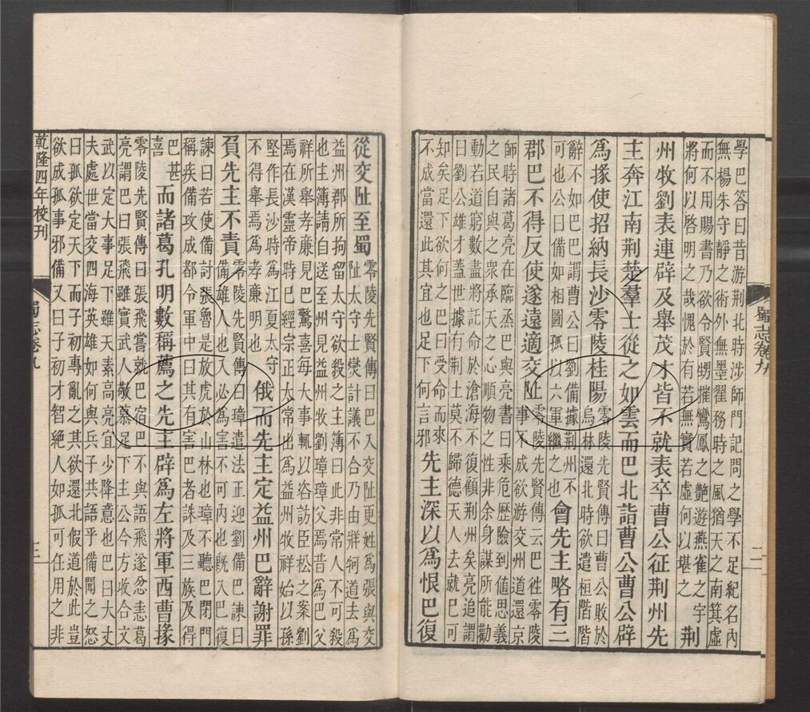 學巴答曰昔游荊北時涉師門記問之學不足紀名內
無楊朱守靜之術外無墨翟務時之風猶天之南箕虛
而不用賜書乃欲令賢甥摧鸞鳳之艷遊燕雀之宇
將何以啓明之哉愧於有若無實若虛何以堪之
荊
州牧劉表連辟及舉茂才皆不就表卒曹公征荊州先
主奔江南荊楚羣士從之如雲而巴北詣曹公曹公辟
爲掾使招納長沙零陵桂陽
零陵先賢傳曰曹公敗於
烏林還北時欲遣桓階階
辭不如巴巴謂曹公曰劉備據荊州不
可也公曰備如相圖孤以六軍繼之也
會先主略有三
郡巴不得反使遂遠適交阯
零陵先賢傳云巴往零陵
事不成欲游交州道還京
師時諸葛亮在臨烝巴與亮書曰乘危歷險到值思義
之民自與之衆承天之心順物之性非余身謀所能勸
動若道窮數盡將託命於滄海不復顧荊州矣亮追謂
曰劉公雄才蓋世據有荊土莫不歸德天人去就巴可
知矣足下欲何之巴曰受命而來
不成當還此其宜也足下何言邪
先主深以爲恨巴復
從交阯至蜀
零陵先賢傳曰巴入交阯更姓爲張與交
阯太守士燮計議不合乃由牂牁道去爲
益州郡所拘留太守欲殺之主簿曰此非常人不可殺
也主簿請自送至州見益州牧劉璋璋父焉昔爲巴父
祥所舉孝廉見巴驚喜每大事輒以咨訪臣松之案劉
焉在漢靈帝時已經宗正太常出爲益州牧祥始以孫
堅作長沙時爲江夏太守
不得舉焉爲孝廉明也
俄而先主定益州巴辭謝罪
負先主不責
零陵先賢傳曰璋遣法正迎劉備巴諫曰
備雄人也入必爲害不可內也旣入巴復
諫曰若使備討張魯是放虎於山林也璋不聽巴閉門
稱疾備攻成都令軍中曰其有害巴者誅及三族及得
巴甚
喜
而諸葛孔明數稱薦之先主辟爲左將軍西曹掾
零陵先賢傳曰張飛嘗就巴宿巴不與語飛遂忿恚葛
亮謂巴曰張飛雖實武人敬慕足下主公今方收合文
武以定大事足下雖天素高亮宜少降意也巴曰大丈
夫處世當交四海英雄如何與兵子共語乎備聞之怒
曰孤欲定天下而子初專亂之其欲還北假道於此豈
欲成孤事邪備又曰子初才智絕人如孤可任用之非
乾隆四年校刊
蜀志卷九
三